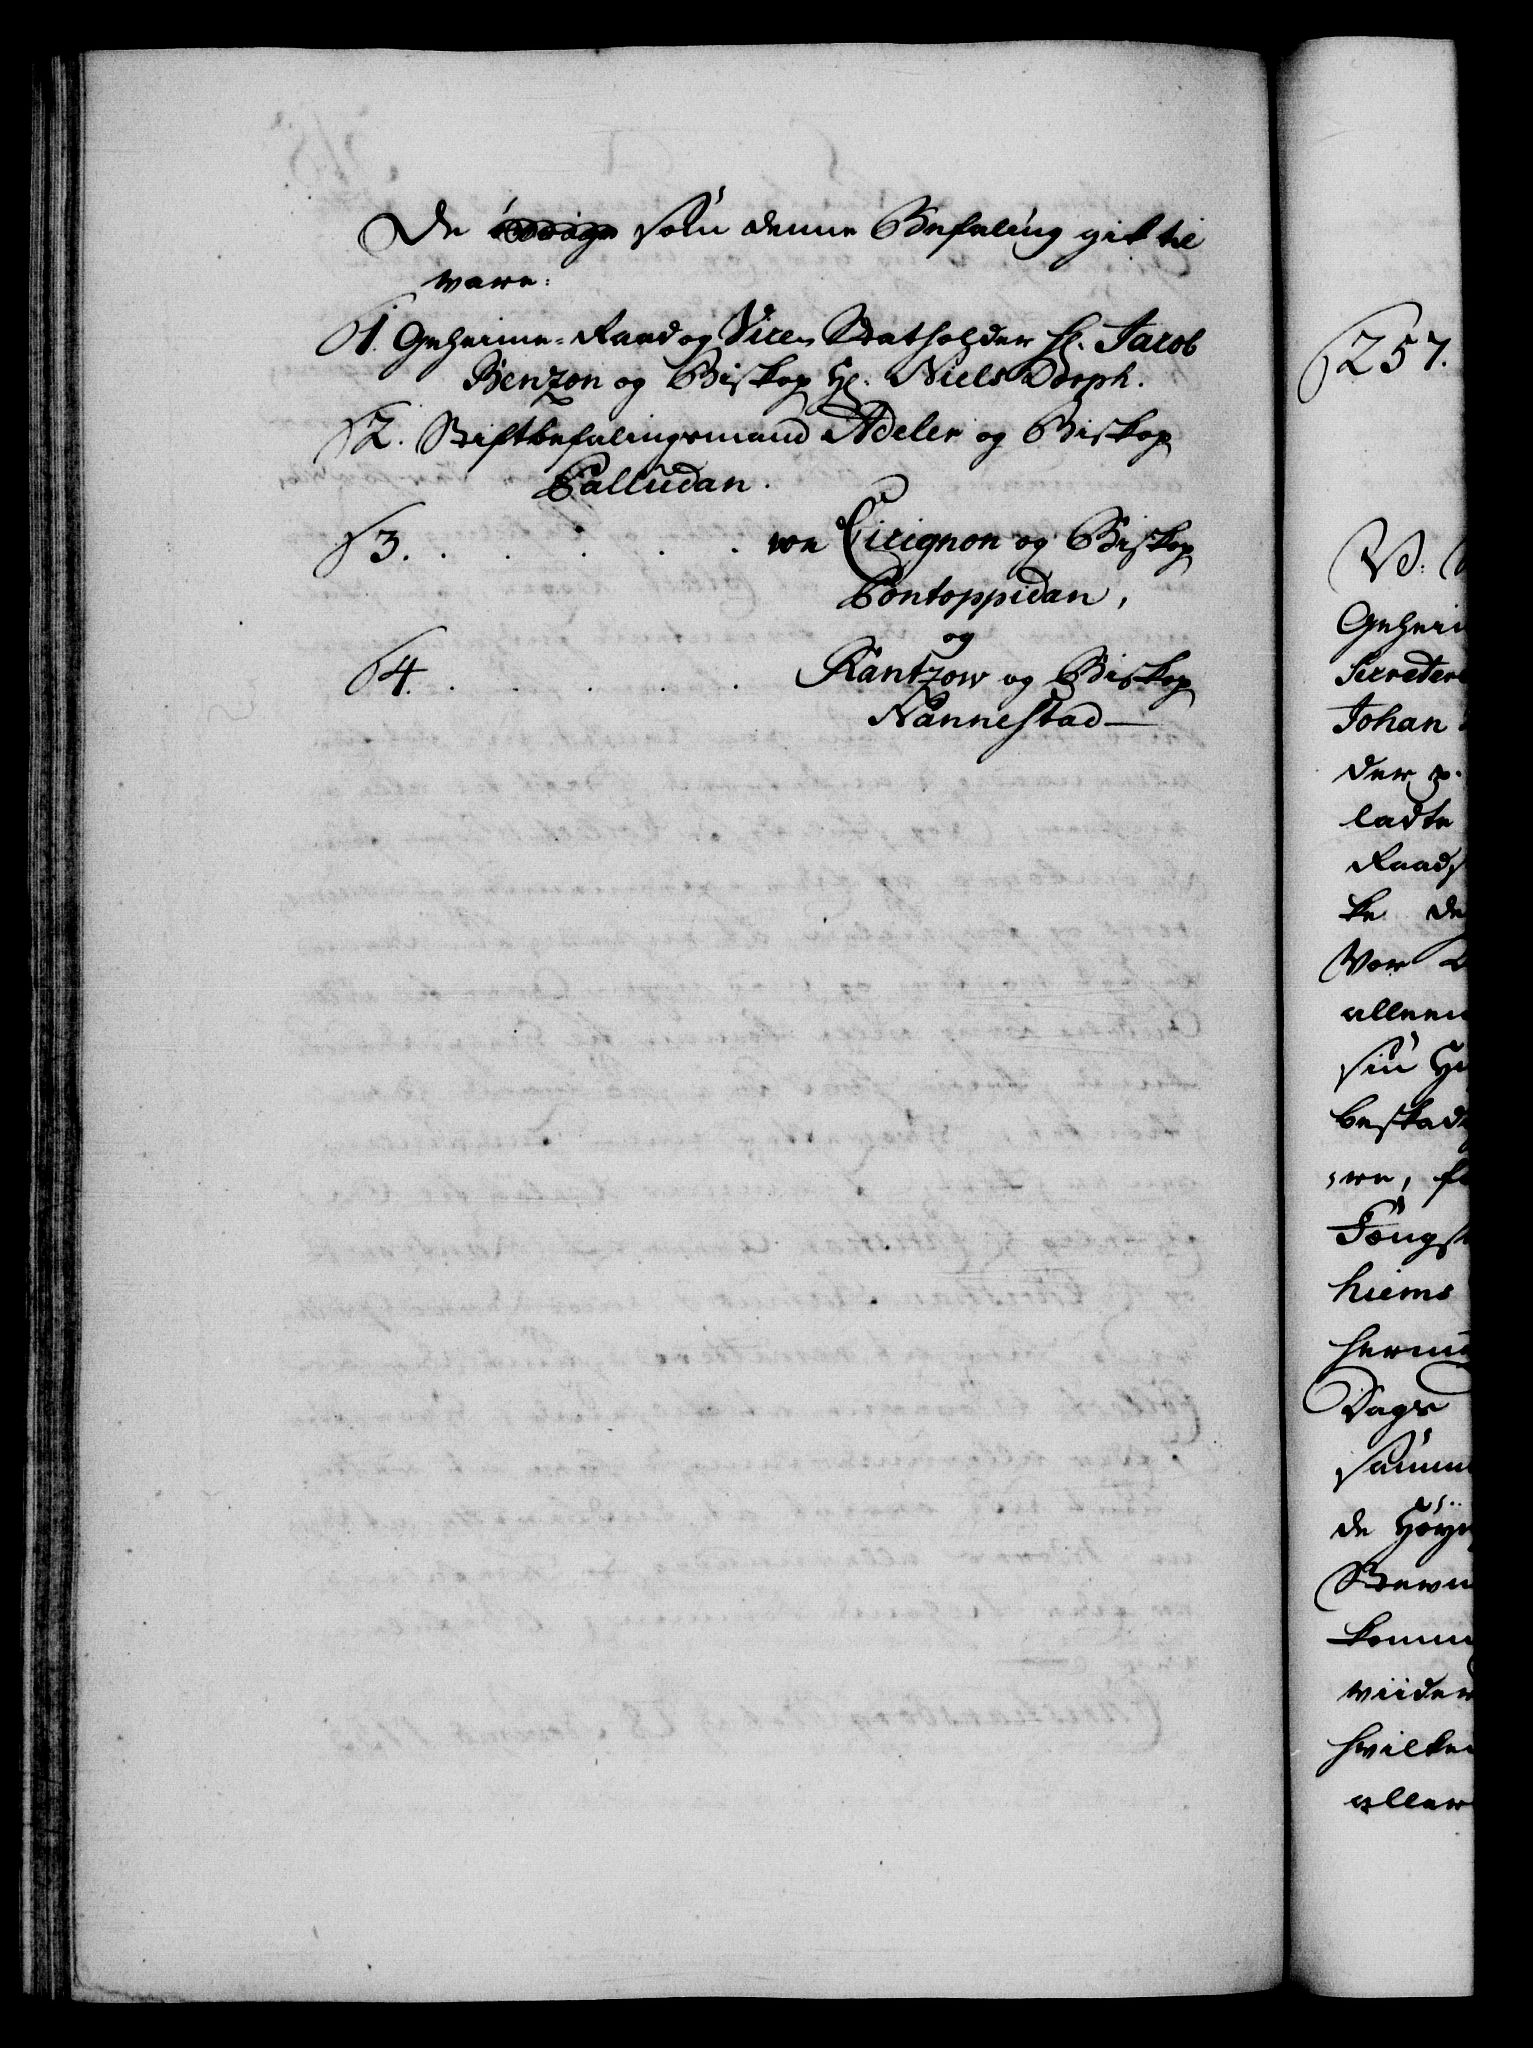 De som denne Befaling gik til
ware:
1. Geheime-Raad og Vice-Statholder Hr. Jacob
Benzon og Biskop Hr. Niels Dorph.
2. Stiftbefalingsmand Adeler og Biskop
Palludan.
3. . . . . . . Cicignon og Biskop
Pontoppidan,
og
4. . . . . . . Rantzow og Biskop
Nannestad
257.
Geheim
Secreter
Johan
der p.
ladte
Raads
ke de
Vor
alleen
sin
bestad
hiems
Dags
de Høy
komm
viider
hvilke
aller